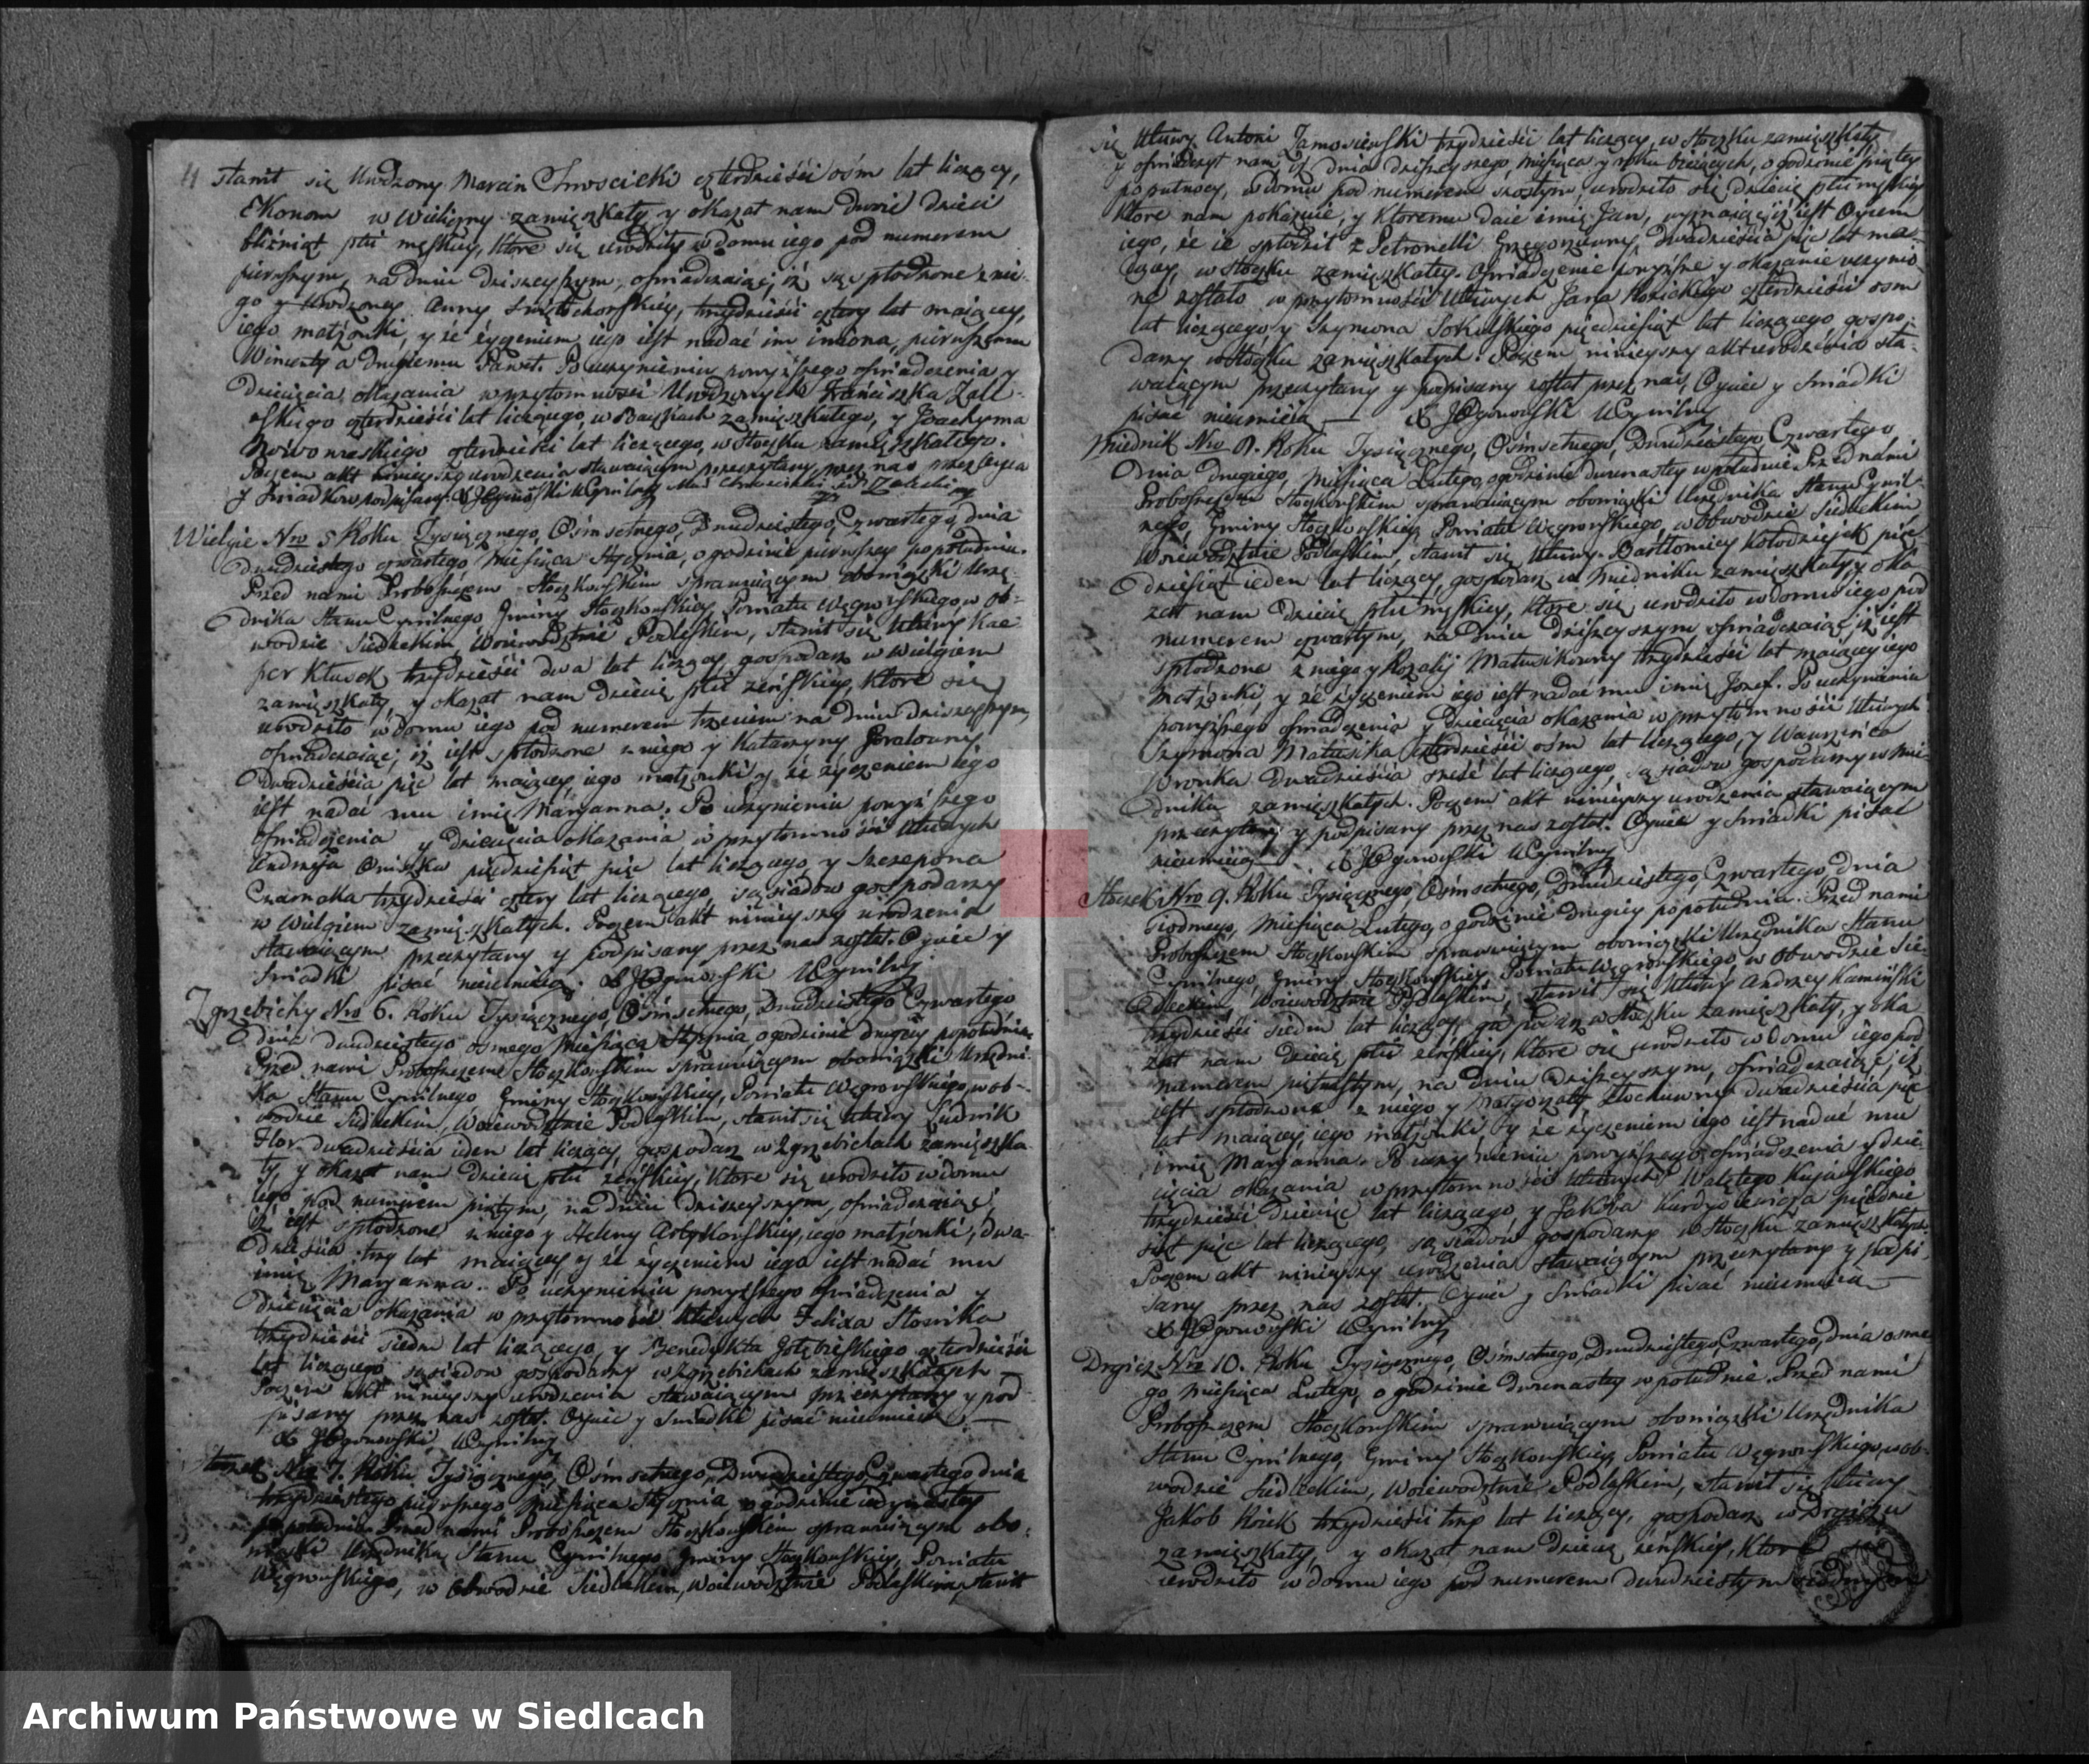 4 stawił się Urodzony Marcin Chroscicki czterdzieści ośm lat liczący,
Ekonom w Wieliczny zamięszkały, y okazał nam dwoie dzieci
bliźniąt płci męskiey, które się urodziły w domu iego pod numerem
pierwszym, na dniu dzisieyszym, oświadczaiąc, iż są spłodzone z nie-
go y Urodzoney Anny Swiętochowskiey, trzydzieści cztery lat maiącey,
iego małżonki, y że życzeniem iego iest nadać im imiona, pierwszemu
Wincenty a drugiemu Paweł. Po uczynieniu powyższego oświadczenia y
dziecięcia okazania w przytomności Urodzonych Franciszka Zale-
skiego czterdzieści lat liczącego, w Baczkach zamięszkałego, y Joachyma
Nowowieskiego czterdzieści lat liczącego, w Stoczku zamięszkałego.
Poczem akt ninieyszy urodzenia stawaiącym przeczytany, przez nas, przez Oyca
y Swiadków podpisany.
Wielgie Nro 5 Roku Tysiącznego, Ośmsetnego, Dwudziestego, Czwartego, dnia
dwudziestego czwartego Miesiąca Stycznia, o godzinie pierwszey popołudniu.
Przed nami Proboszczem Stoczkowskim sprawuiącym obowiązki Urzę-
dnika Stanu Cywilnego Gminy Stoczkowskiey, Powiatu Węgrowskiego, w ob-
wodzie Siedleckim, Woiewodztwie Podlaskim, stawił się Uczciwy Kac-
per Kłusek trzydzieści dwa lat liczący, gospodarz w Wielgiem
zamięszkały, y okazał nam dziecię płci żeńskiey, które się
urodziło w domu iego pod numerem trzecim na dniu dzisieyszym,
oświadczaiąc, iż iest spłodzone z niego y Katarzyny Goralowny
dwadzieścia pięć lat maiącey, iego małżonki y że życzeniem iego
iest nadać mu imię Maryanna. Po uczynieniu powyższego
oświadczenia y dziecięcia okazania, w przytomności Uczciwych
Andrzeja Oniszka pięćdziesiąt pięć lat liczącego, y Szczepana
Czarnoka trzydzieści cztery lat liczącego, sąsiadów gospodarzy
w Wielgiem zamięszkałych. Poczem akt ninieyszy urodzenia
stawaiącym przeczytany y podpisany przez nas został. Oyciec y
Swiadki pisać nieumieią.
Zgrzebichy Nro 6. Roku Tysiącznego, Ośmsetnego, Dwudziestego, Czwartego
dnia dwudziestego osmego Miesiąca Stycznia, o godzinie drugiey popołudniu.
Przed nami Proboszczem Stoczkowskim sprawuiącym obowiązki Urzędni-
ka Stanu Cywilnego Gminy Stoczkowskiey, Powiatu Węgrowskiego, w ob-
wodzie Siedleckim, Woiewodztwie Podlaskim, stawił się Uczciwy Ludwik
Flor dwadzieścia ieden lat liczący, gospodarz w Zgrzebichach zamięszka-
ły, y okazał nam dziecię płci żeńskiey, które się urodziło w domu
iego pod numerem piątym, na dniu dzisieyszym, oświadczaiąc,
iż iest spłodzone z niego y Heleny iego małżonki, dwa-
dzieścia trzy lat maiącey y że życzeniem iego iest nadać mu
imię Maryanna. Po uczynieniu powyższego oświadczenia y
dziecięcia okazania w przytomności Uczciwych Felixa Słowika
trzydzieści siedm lat liczącego, y Benedykta Gołębieskiego czterdzieści
lat liczącego sąsiadów gospodarzy w Zgrzebichach zamięszkałych
Poczem akt ninieyszy urodzenia stawaiącym przeczytany y pod-
pisany przez nas został. Oyciec y Swiadki pisać nieumieią.
Stoczek Nro 7. Roku Tysiącznego, Ośmsetnego, Dwudziestego, Czwartego dnia
trzydziestego pierwszego Miesiąca Stycznia o godzinie iedynastey
Przed nami Proboszczem Stoczkowskim sprawuiącym obo-
wiązki Urzędnika Stanu Cywilnego Gminy Stoczkowskiey, Powiatu
Węgrowskiego, w obwodzie Siedleckim, Woiewodztwie Podlaskim, stawił
się Uczciwy Antoni Zamoscieński trzydzieści lat liczący, w Stoczku zamięszkały,
y oświadczył nam, iż dnia dzisieyszego, miesiąca y roku bieżących, o godzinie piątey
po północy, w domu pod numerem szostym, urodziło się dziecię płci męskiey,
które nam pokazuie, y któremu daie imię Jan, wyznaiąc, iż iest Oycem
iego, że ie spłodził z Petronelli Grzegorzewny, dwadzieścia pięć lat ma-
iącey, w Stoczku zamięszkałey. Oświadczenie powyższe y okazanie uczynio-
ne zostało w przytomności Uczciwych Jana Kosickiego czterdzieści osm
lat liczącego y Szymona Sokulskiego pięćdziesiąt lat liczącego gospo-
darzy w Stoczku zamięszkałych. Poczem ninieyszy akt urodzenia sta-
waiącym przeczytany y podpisany został przez nas, Oyciec y Swiadki
pisać nieumieią
Miednik Nro 8. Roku Tysiącznego, Ośmsetnego, Dwudziestego Czwartego
dnia drugiego, Miesiąca Lutego, o godzinie dwunastey w południe. Przed nami
Proboszczem Stoczkowskim sprawuiącym obowiązki Urzędnika Stanu Cywil-
nego, Gminy Stoczkowskiey, Powiatu Węgrowskiego, w obwodzie Siedleckim,
Woiewodztwie Podlaskim, stawił się Uczciwy Bartłomiey Kołodzieiek pięć-
dziesiąt ieden lat liczący, gospodarz w Miedniku zamięszkały, y oka-
zał nam dziecię płci męskiey, które się urodziło w domu iego pod
numerem czwartym, na dniu dzisieyszym oświadczaiąc, iż iest
spłodzone z niego y Rozalij Matusikowny trzydzieści lat maiącey iego
małżonki, y że życzeniem iego iest nadać mu imię Jozef. Po uczynieniu
powyższego oświadczenia y dziecięcia okazania w przytomności Uczciwych
Szymona Matusika czterdzieści ośm lat liczącego, y Wawrzińca
Wronka dwadzieścia sześć lat liczącego, sąsiadów gospodarzy w Mie-
dniku zamięszkałych. Poczem akt ninieyszy urodzenia stawaiącym
przeczytany y podpisany przez nas został. Oyciec y Swiadki pisać
nieumieią
Stoczek Nro 9. Roku Tysiącznego, Ośmsetnego, Dwudziestego, Czwartego, dnia
siodmego, Miesiąca Lutego, o godzinie drugiey popołudniu. Przed nami
Proboszczem Stoczkowskim sprawuiącym obowiązki Urzędnika Stanu
Cywilnego, Gminy Stoczkowskiey, Powiatu Węgrowskiego w obwodzie Sie-
dleckim, Woiewodztwie Podlaskim, stawił się Uczciwy Andrzey Kamiński
trzydzieści siedm lat liczący, gospodarz w Stoczku zamięszkały, y oka-
zał nam dziecię płci żeńskiey, które się urodziło w domu iego pod
numerem piętnastym, na dniu dzisieyszym, oświadczaiąc, iż
iest spłodzone z niego y Małgorzaty dwadzieścia pięć
lat maiącey, iego małżonki, y że życzeniem iego iest nadać mu
imię Maryanna. Po uczynieniu powyższego oświadczenia y dzie-
cięcia okazania w przytomności Uczciwych Walętego Kujawskiego
trzydzieści dziewięć lat liczącego y Jakóba Kurdyowicza pięćdzie-
siąt pięć lat liczącego, sąsiadów gospodarzy w Stoczku zamięszkałych.
Poczem akt ninieyszy urodzenia stawaiącym przeczytany y podpi-
sany przez nas został. Oyciec y Swiadki pisać nieumieią
Drgicz Nro 10. Roku Tysiącznego, Ośmsetnego, Dwudziestego, Czwartego, dnia osme-
go Miesiąca Lutego, o godzinie dwunastey w południe. Przed nami
Proboszczem Stoczkowskim sprawuiącym obowiązki Urzędnika
Stanu Cywilnego, Gminy Stoczkowskiey, Powiatu Węgrowskiego, w ob-
wodzie Siedleckim, Woiewodztwie Podlaskim, stawił się Uczciwy
Jakób trzydzieści trzy lat liczący, gospodarz w Drgiczu
zamięszkały, y okazał nam dziecię żeńskiey, które się
urodziło w domu iego pod numerem dwudziestym
Archiwum Państwowe w Siedlcach